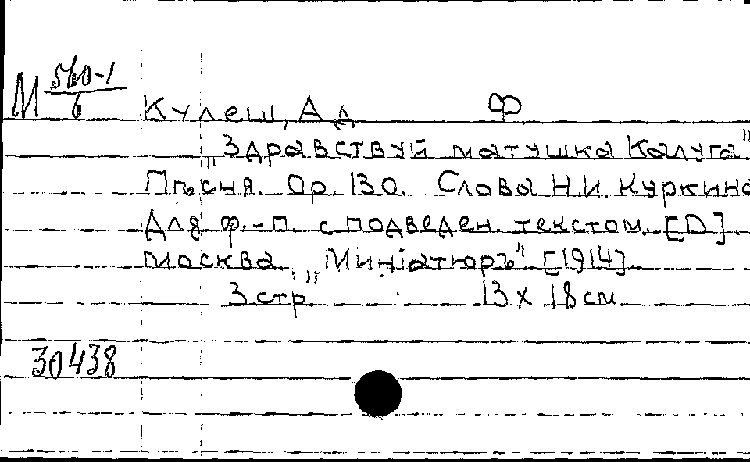 М 560-1
6
Кулеш, Ад Ф
„Здравствуй матушка Калуга"
Пѣсня. Op. 130. Слова Н.И. Куркина
Для ф.-п. с подведен. текстом. [D]
Москва, „Миніатюръ" [1914]
3 стр. 13 x 18 см
30438